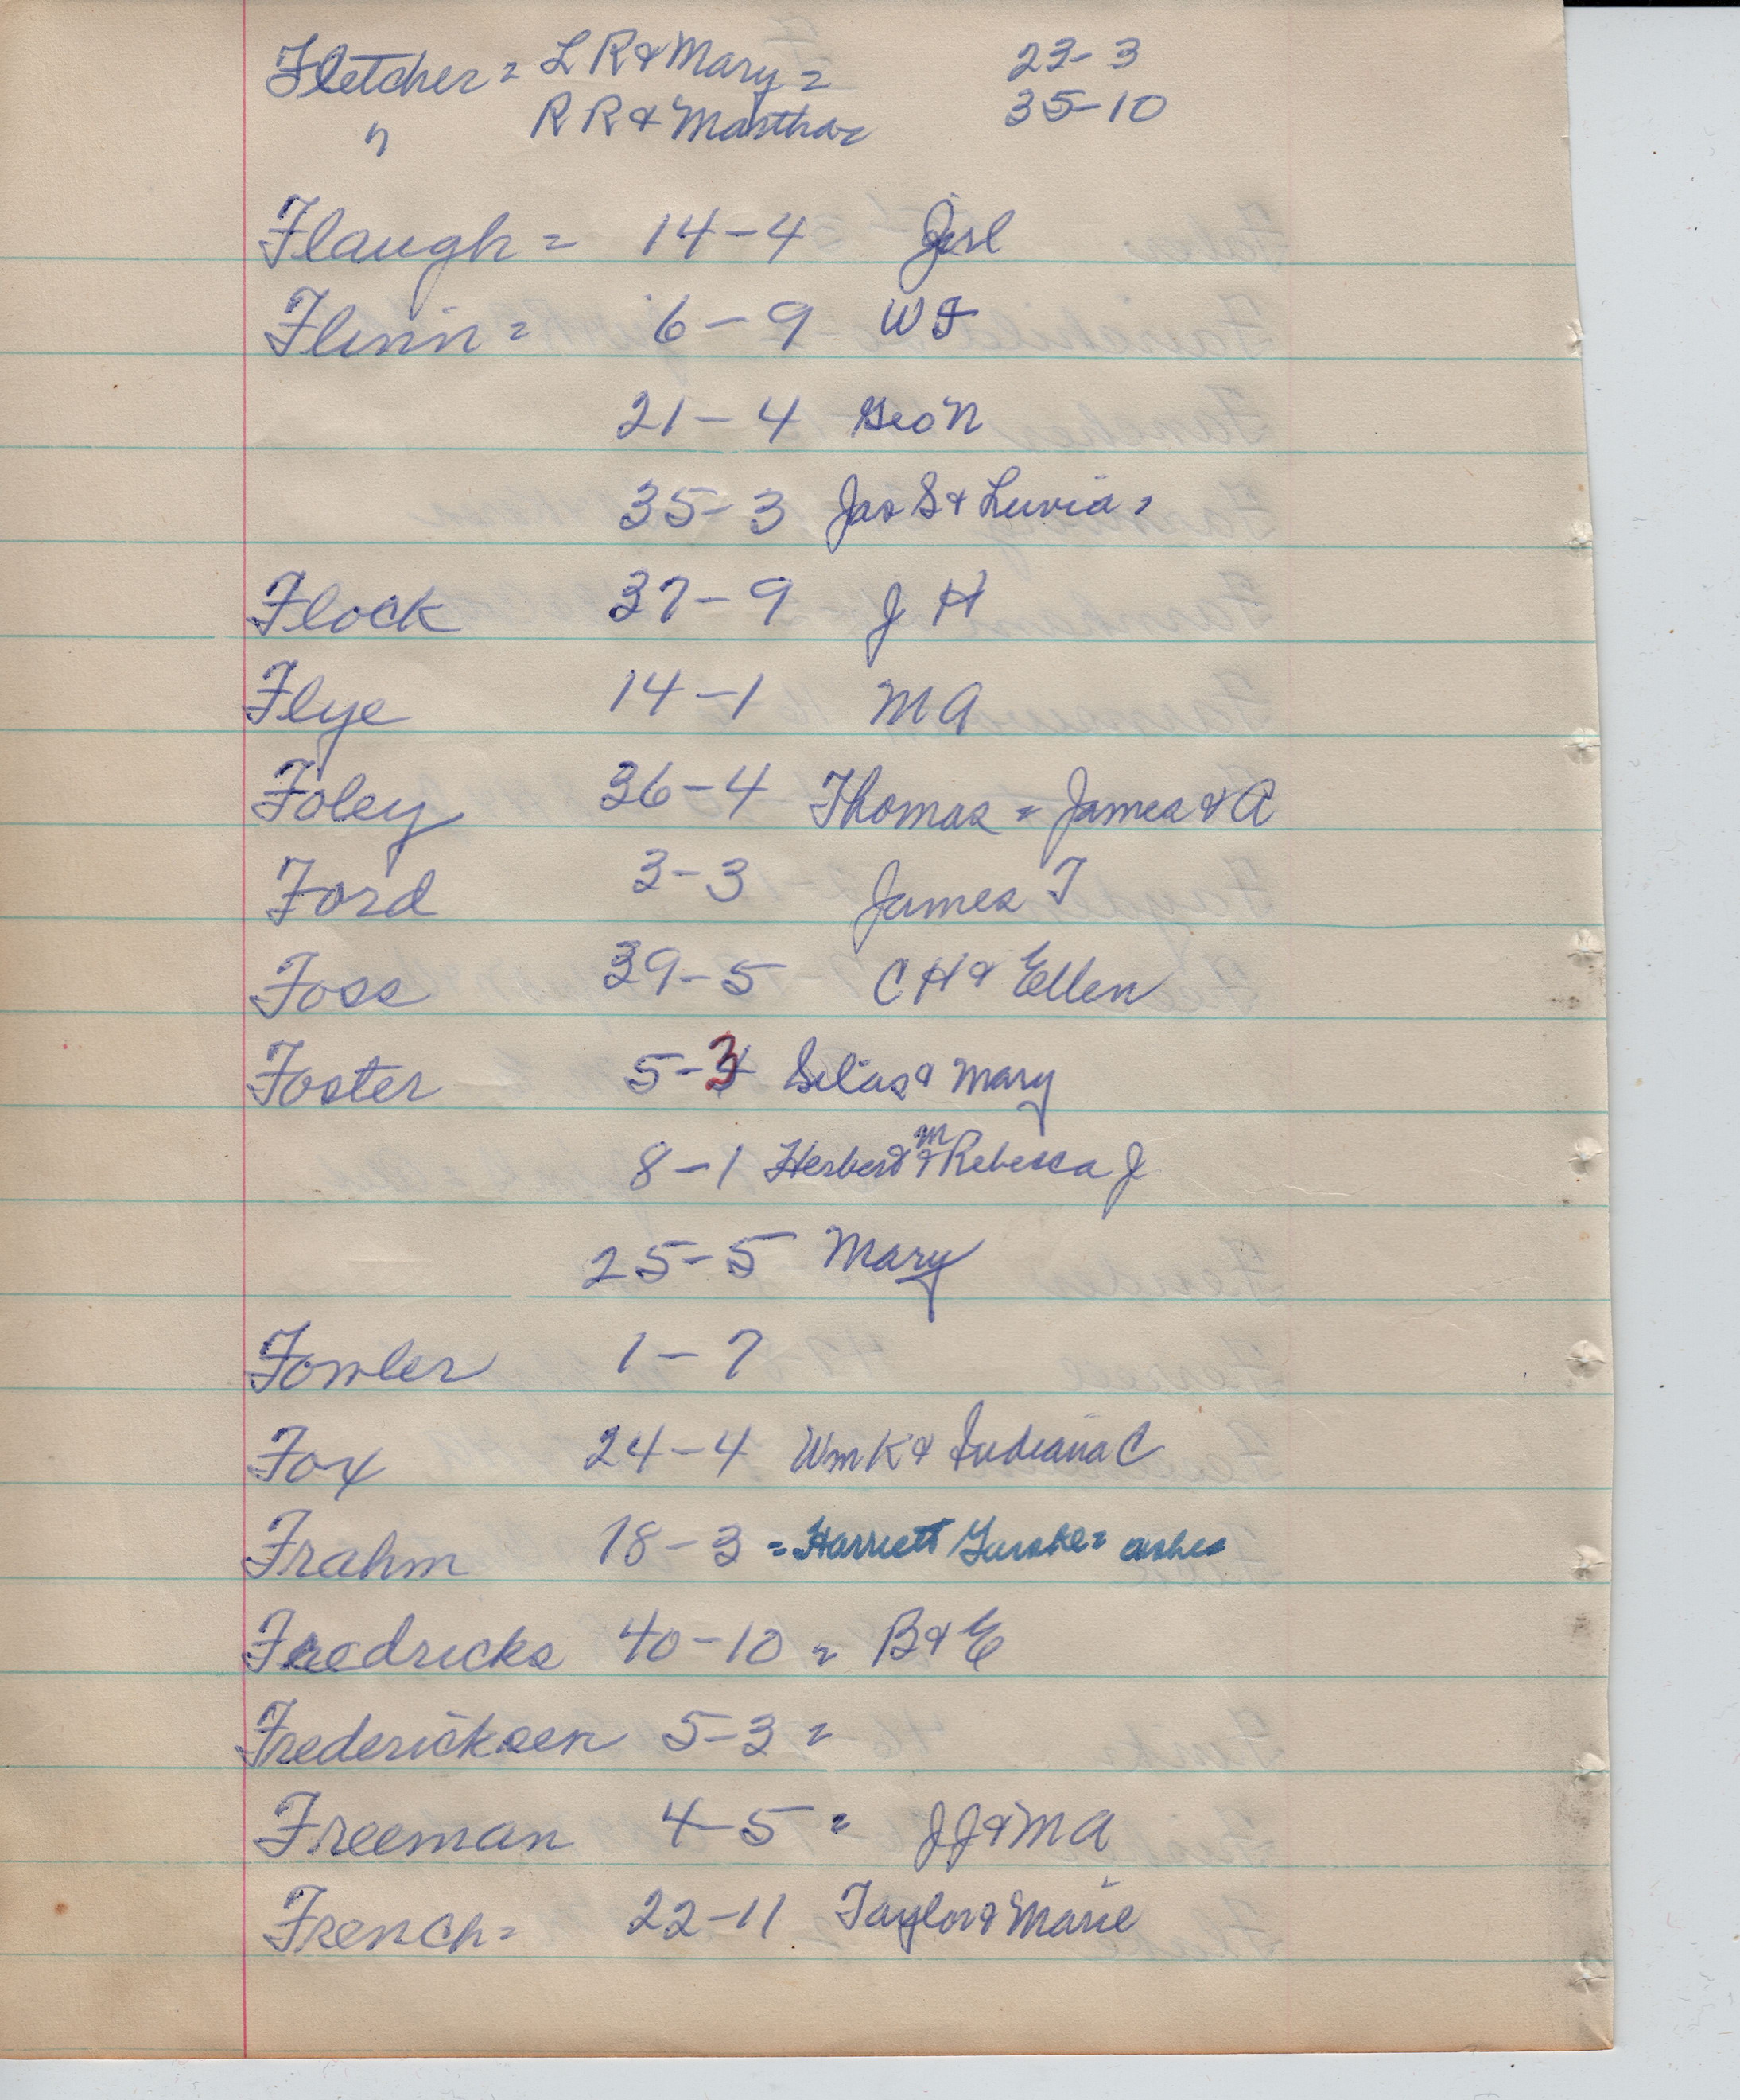 Fletcher = L R & Mary = 23-3
" R R & Martha = 35-10
Flaugh = 14-4
Flinn = 6-9 W F
21-4 Geo N
35-3 Jas S & Luvia =
Flock 37-9 J H
Flye 14-1 M A
Foley 36-4 Thomas = James & A
Ford 3-3 James T
Foss 39-5 C H & Ellen
Foster 5-3 Silas & Mary
8-1 Herbert M & Rebecca J
25-5 Mary
Fowler 1-7
Fox 24-4 Wm K & Indiana C
Frahm 18-3 = Harriett = ashes
Fredricks 40-10 = B & E
Fredericksen 5-3 =
Freeman 4-5 = J J & M A
French = 22-11 Taylor & Marie